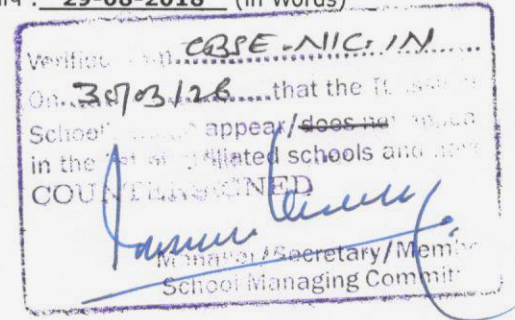 : 29-08-2018 (in Words)
Verified CBSE-NIC.IN
On 30/03/26 that the
School appear/does not
in the list of affiliated schools and
COUNTERSIGNED
Manager/Secretary/Membe
School Managing Commit